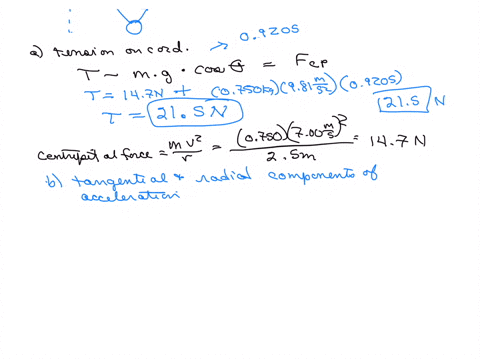 0.9205
a) tension on cord.
T - m.g . cos θ = Fcp
T = 14.7N + (0.750kg)(9.81 m/s²)(0.9205)
T = 21.5N
21.5 N
Centripetal force = mv²/r = (0.750)(7.00 m/s)²/2.5m = 14.7 N
b) tangential & radial components of
acceleration